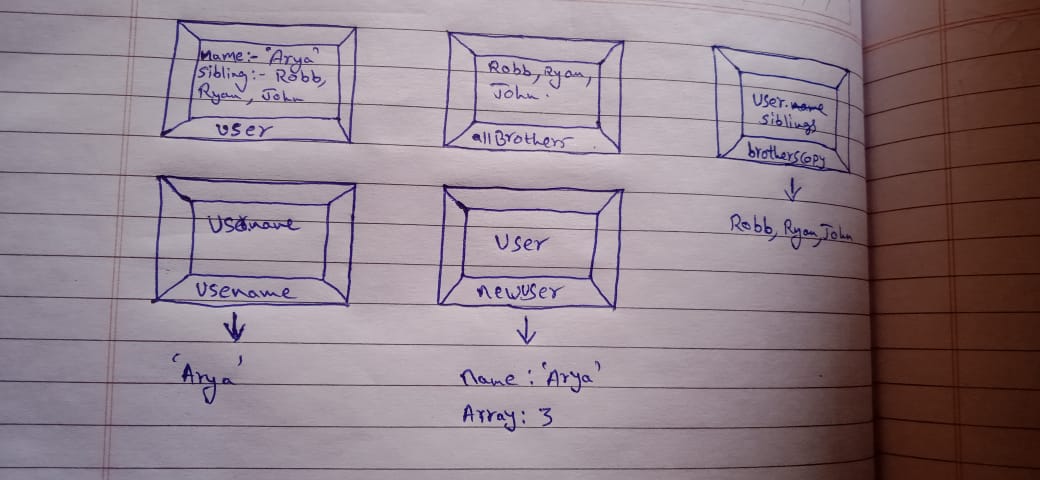 Name:- 'Arya'
Sibling:- Robb,
Ryan, John
user
Robb, Ryan,
John.
allBrothers
User.name
siblings
brotherscopy
Robb, Ryan, John
Username
Usename
'Arya'
User
newuser
Name: 'Arya'
Array: 3